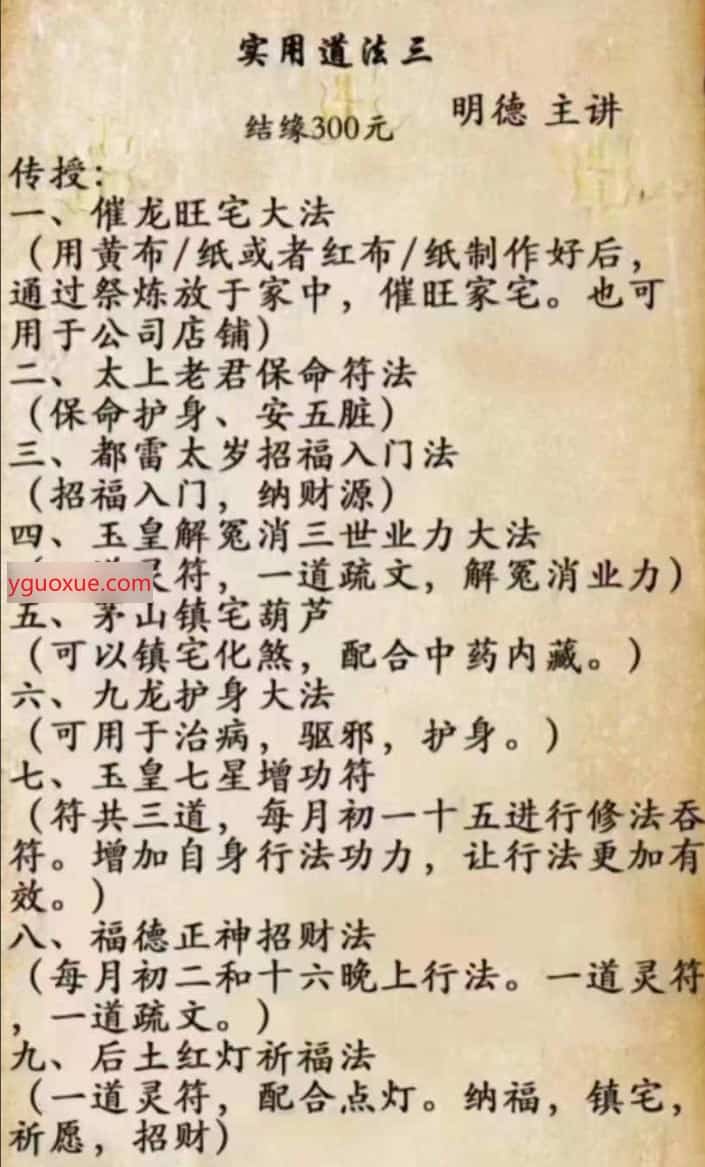 实用道法三
结缘300元
明德 主讲
传授：
一、催龙旺宅大法
（用黄布/纸或者红布/纸制作好后，
通过祭炼放于家中，催旺家宅。也可
用于公司店铺）
二、太上老君保命符法
（保命护身、安五脏）
三、都雷太岁招福入门法
（招福入门，纳财源）
四、玉皇解冤消三世业力大法
灵符，一道疏文，解冤消业力）
yguoxue.com
五、茅山镇宅葫芦
（可以镇宅化煞，配合中药内藏。）
六、九龙护身大法
（可用于治病，驱邪，护身。）
七、玉皇七星增功符
（符共三道，每月初一十五进行修法吞
符。增加自身行法功力，让行法更加有
效。）
八、福德正神招财法
（每月初二和十六晚上行法。一道灵符
，一道疏文。）
九、后土红灯祈福法
（一道灵符，配合点灯。纳福，镇宅，
祈愿，招财）